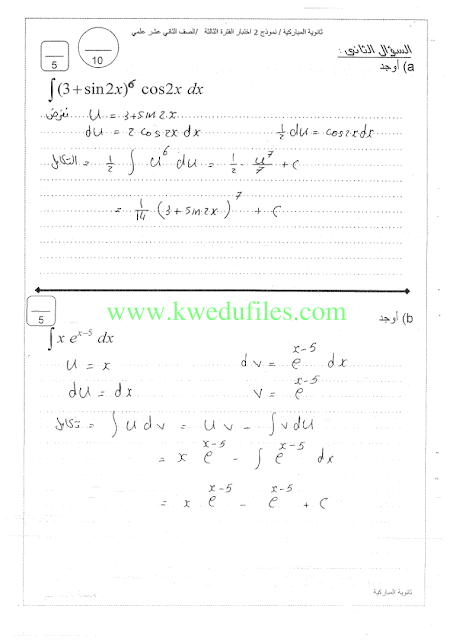 ثانوية المباركية / نموذج 2 اختبار الفترة الثالثة /الصف الثاني عشر علمي
السؤال الثاني :
5
10
a) أوجد
∫(3+sin2x)⁶ cos2x dx
نفرض u = 3+sin2x
du = 2 cos2x dx ½ du = cos2x dx
التكامل = ½ ∫ u⁶ du = ½ · u⁷/7 + c
= 1/14 (3+sin2x)⁷ + c
5
b) أوجد
www.kwedufiles.com
∫x eˣ⁻⁵ dx
u = x dv = eˣ⁻⁵ dx
du = dx v = eˣ⁻⁵
تكامل = ∫ u dv = uv - ∫v du
= x eˣ⁻⁵ - ∫ eˣ⁻⁵ dx
= x eˣ⁻⁵ - eˣ⁻⁵ + c
ثانوية المباركية